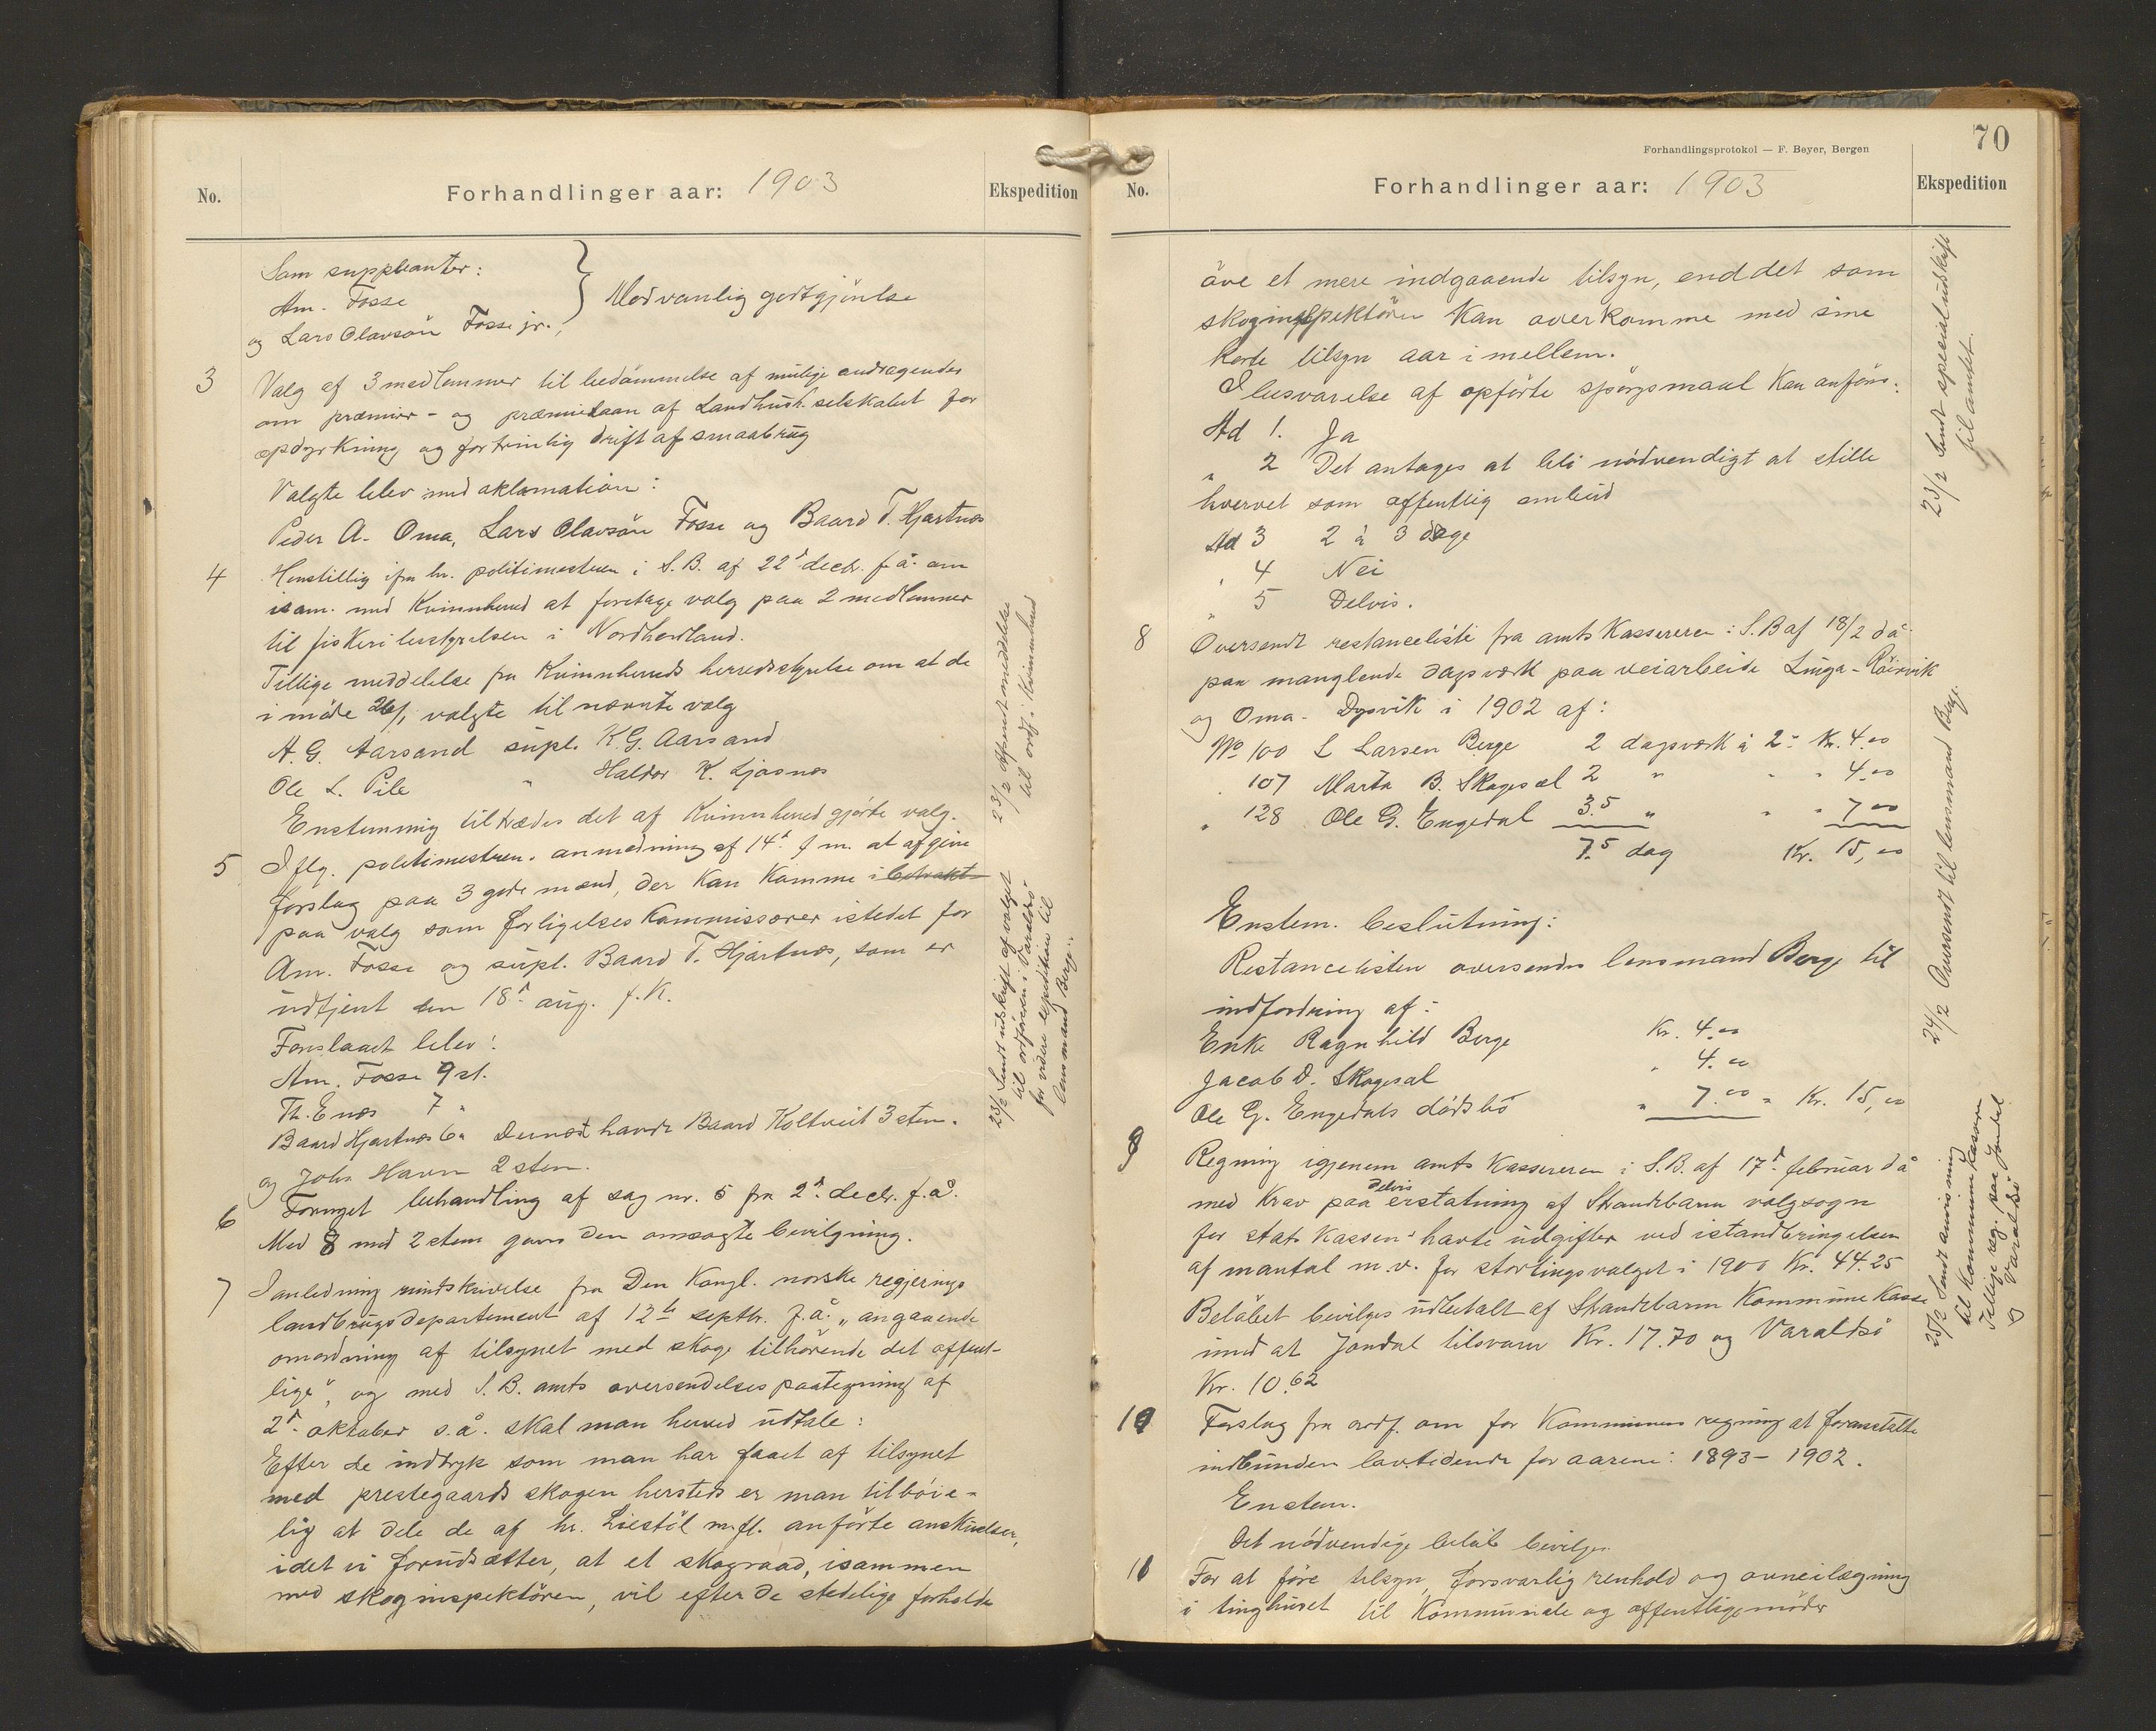 No.
Forhandlinger aar: 1903
Ekspedition
Som suppleanter:
Am. Fosse
og Lars Olavsön Fosse jr.,
} Mod vanlig godtgjörelse
3 Valg af 3 medlemmer til bedömmelse af mulige andragender
om præmier- og præmielaan af Landhush. selskabet for
opdyrkning og fortrinlig drift af smaabrug
Valgte blev med aklamation:
Peder A. Oma, Lars Olavsön Fosse og Baard T. Hjartnes
4 Henstillig ifra hr. politimesteren i S.B. af 22d decbr. f.å. om
isam. med Kvinnherred at foretage valg paa 2 medlemmer
til fiskeribestyrelsen i Nordhordland.
Tillige meddelelse fra Kvinnherreds herredsstyrelse om at de
i möde 26/1 valgte til nævnte valg
A. G. Aarsand supl. K. G. Aarsand
Ole L. Pile " Haldor K. Ljosnes
Enstemmig tiltrædes det af Kvinnherred gjorte valg.
23/2 Afsendt meddelelse
til ordf. i Kvinnherred
5 Iflg. politimesteren. anmodning af 14d f m. at afgive
forslag paa 3 gode mænd, der kan komme i betrakt
paa valg som forligelseskommissærer istedet for
Am. Fosse og supl. Baard T. Hjartnes, som er
udtjent den 18d aug. f.K.
Foreslaaet blev:
Am. Fosse 9 st.
Th. Enes 7 "
Baard Hjartnes 6 " Dernæst havde Baard Koltveit 3 stem.
og John Havn 2 stem.
23/2 Sendt udskrift af valget
til ordföreren i Varaldsö
for videre expedition til
lensmand Berge.
6 Fornyet behandling af sag nr. 5 fra 2d decbr. f.å.
Med 8 mod 2 stem gaves den omsögte bevilgning.
7 I anledning rundskrivelse fra Den Kongl. norske regjerings
landbrugsdepartement af 12te septbr. f.å. "angaaende
omordning af tilsynet med skoge tilhörende det offent-
lige", og med S. B. amts oversendelsespaategning af
2d oktober s.å. skal man herved udtale:
Efter de indtryk som man har faaet af tilsynet
med prestegaardsskogen hersteds er man tilböie-
lig at dele de af hr. Liestöl m.fl. anförte anskuelser,
idet vi forudsætter, at et skograad, isammen
med skoginspektören, vil efter de stedelige forholde
Forhandlingsprotokol — F. Beyer, Bergen
70
No.
Forhandlinger aar: 1903
Ekspedition
öve et mere indgaaende tilsyn, end det som
skoginspektören kan overkomme med sine
korte tilsyn aar i mellem.
I besvarelse af opförte spörgsmaal kan anföres:
Ad 1. Ja
" 2 Det antages at bli nödvendigt at stille
hvervet som offentlig ombud
Ad 3 2 à 3 dage
" 4 Nei
" 5 Delvis.
23/2 Sendt specialudskrift
til amtet.
8 Oversendt restanceliste fra amtskassereren i S.B af 18/2 då
paa manglende dagsværk paa veiarbeide Linga - Röirvik
og Oma - Dysvik i 1902 af:
No 100 L Larsen Berge 2 dagsværk à 2- Kr. 4.00
" 107 Marta B. Skogesal 2 " " " 4.00
" 128 Ole G. Engedal 3.5 " " " 7.00
7.5 dag Kr. 15,00
Enstem. beslutning:
Restancelisten oversendes lensmand Berge til
indfordring af:
Enke Ragnhild Berge Kr. 4.00
Jacob D. Skogesal " 4.00
Ole G. Engedals dödsbö " 7.00 " Kr. 15,00
24/2 Oversendt til lensmand Berge.
9 Regning igjenem amtskassereren i S.B. af 17d februar då
med krav paa delvis erstatning af Strandebarm valgsogn
for statskassens havte udgifter ved istandbringelsen
af mantal m.v. for stortingsvalget i 1900 Kr. 44.25
Belöbet bevilges udbetalt af Strandebarm Kommunekasse
imod at Jondal tilsvarer Kr. 17.70 og Varaldsö
Kr. 10.62
25/2 Sendt anvisning
til kommunekasseren
Tillige reg. paa Jondal
og Varaldsö
10 Forslag fra ordf. om for Kommunens regning at foranstalte
indbunden lovtidende for aarene: 1893 - 1902.
Enstem.
Det nödvendige belöb bevilges.
11 For at före tilsyn, forsvarlig renhold og ovneilægning
i tinghuset til Kommunale og offentlige möder